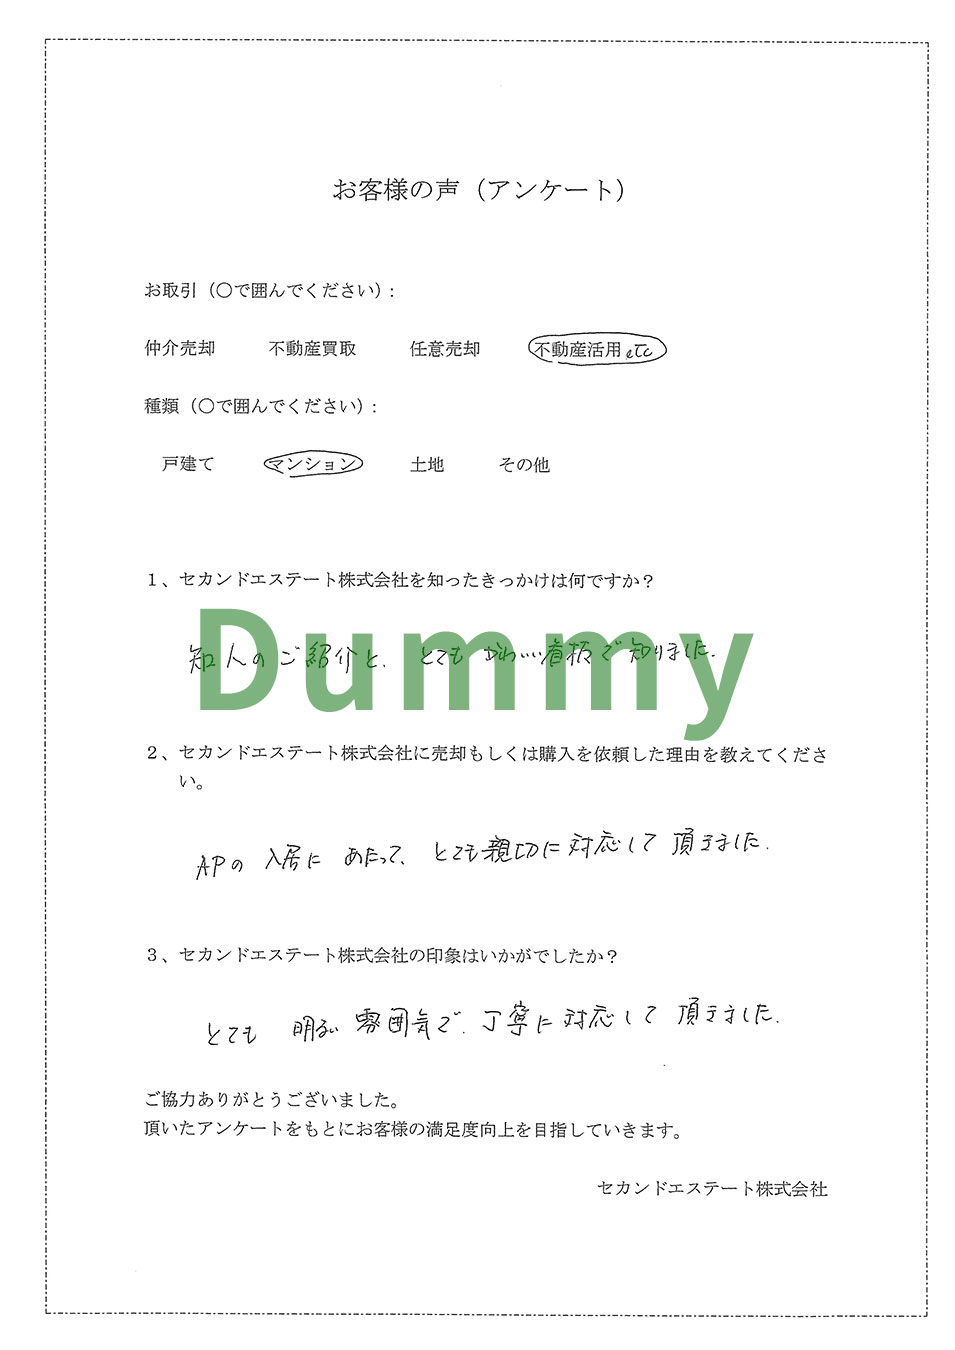 お客様の声（アンケート）
お取引（○で囲んでください）:
仲介売却 不動産買取 任意売却 不動産活用 etc
種類（○で囲んでください）:
戸建て マンション 土地 その他
１、セカンドエステート株式会社を知ったきっかけは何ですか？
知人のご紹介と、とてもかわいい看板で知りました.
Dummy
２、セカンドエステート株式会社に売却もしくは購入を依頼した理由を教えてくださ
い。
APの入居にあたって、とても親切に対応して頂きました.
３、セカンドエステート株式会社の印象はいかがでしたか？
とても明るい雰囲気で、丁寧に対応して頂きました.
ご協力ありがとうございました。
頂いたアンケートをもとにお客様の満足度向上を目指していきます。
セカンドエステート株式会社